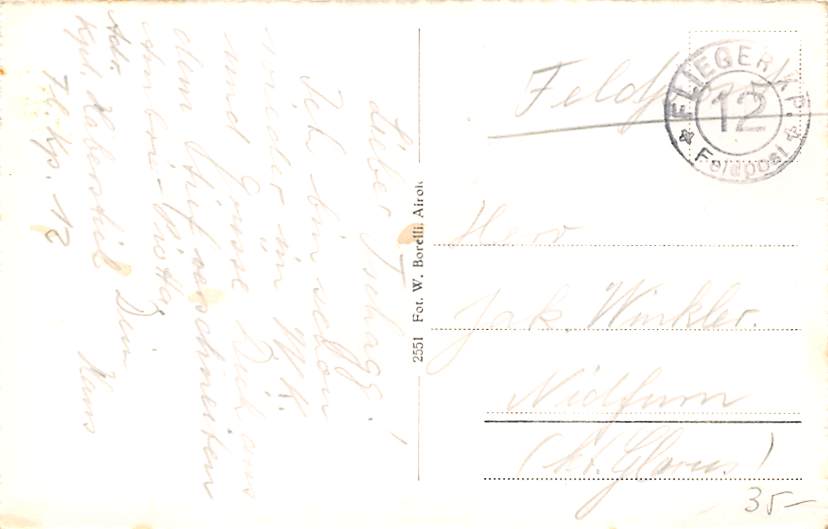 Lieber Tschagg!
Ich bin schon
wieder im W.K.
und grüsse Dich aus
dem tief verschneiten
Ambri-Piotta
Dein
Hans
Adr.
Kpl. Haberstich
Fl. Kp. 12
2551 Fot. W. Borelli, Airolo
Feldpost
FLIEGER KP.
12
Feldpost
Herr
Jak. Winkler.
Nidfurn
(Kt. Glarus)
35-